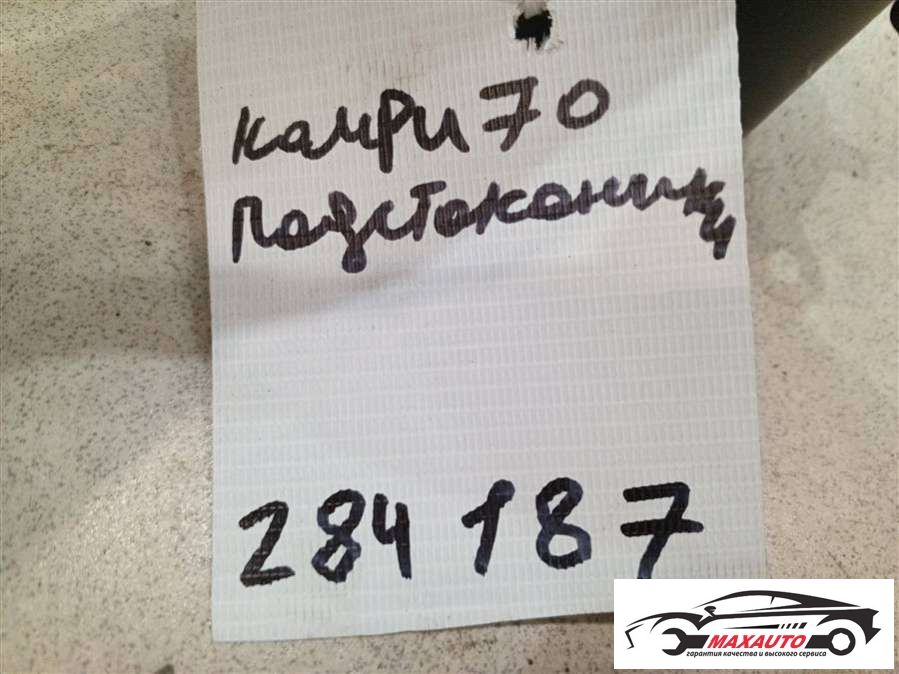 Камри 70
Подстаканники
284 187
MAXAUTO
гарантия качества и высокого сервиса